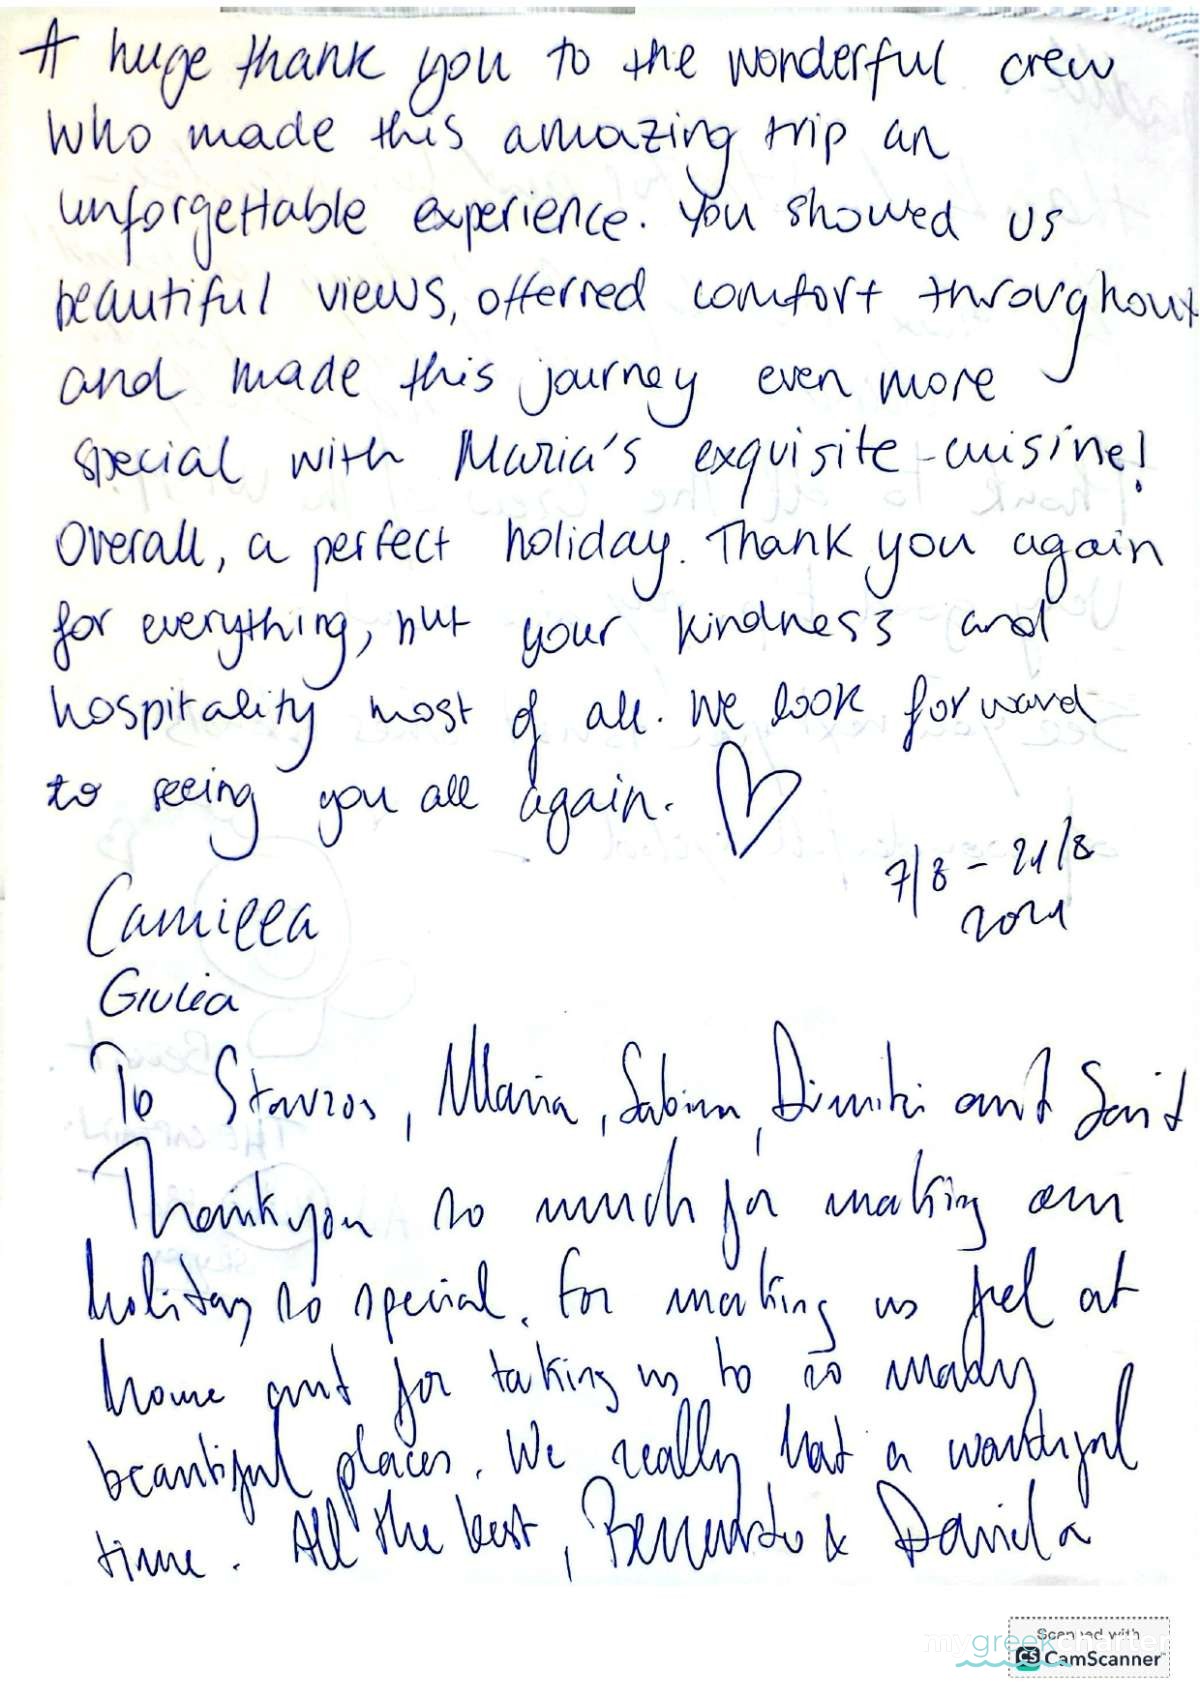 A huge thank you to the wonderful crew
who made this amazing trip an
unforgettable experience. You showed us
beautiful views, offerred comfort throughout
and made this journey even more
special with Maria's exquisite cuisine!
Overall, a perfect holiday. Thank you again
for everything, but your kindness and
hospitality most of all. We look forward
to seeing you all again.
7/8 - 21/8
2021
Camilla
Giulia
To Stavros, Maria, Sabina, Dimitri and Said
Thank you so much for making our
holiday so special. For making us feel at
home and for taking us to so many
beautiful places. We really had a wonderful
time. All the best, & Daniela
Scanned with
mygreekcharter
CS CamScanner